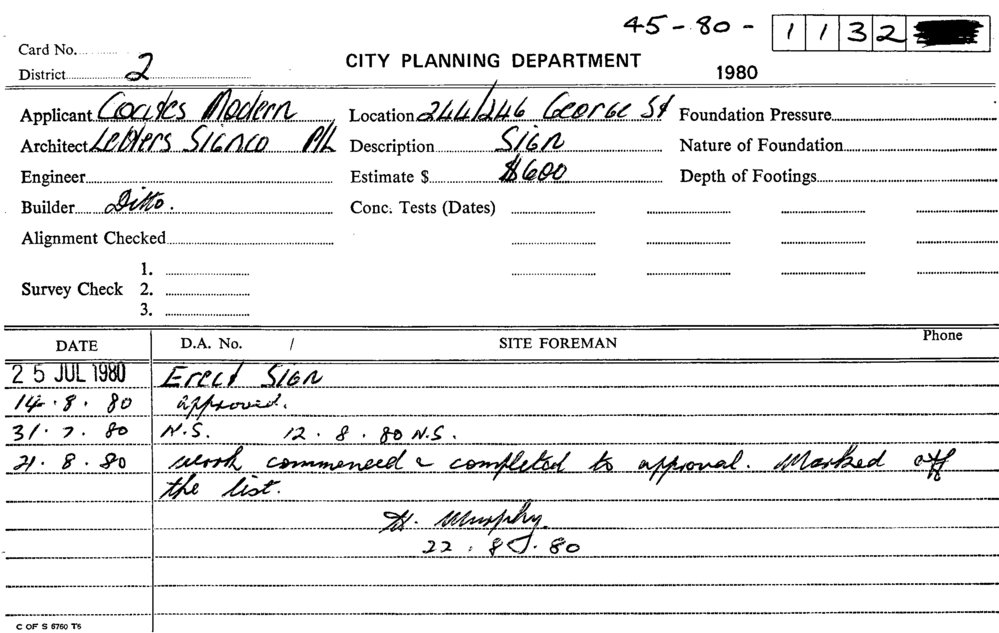 45-80- 1132
Card No.
District 2
CITY PLANNING DEPARTMENT
1980
Applicant Coates Modern
Location 244/246 George St
Foundation Pressure
Architect Letters Signco P/L
Description Sign
Nature of Foundation
Engineer
Estimate $ $600
Depth of Footings
Builder Ditto.
Conc. Tests (Dates)
Alignment Checked
Survey Check 1. 2. 3.
DATE D.A. No. / SITE FOREMAN Phone
25 JUL 1980 Erect Sign
14.8.80 approved.
31.7.80 N.S. 12.8.80 N.S.
21.8.80 work commenced & completed to approval. Marked off
the list.
H. Murphy
22.8.80
C OF S 6760 T5